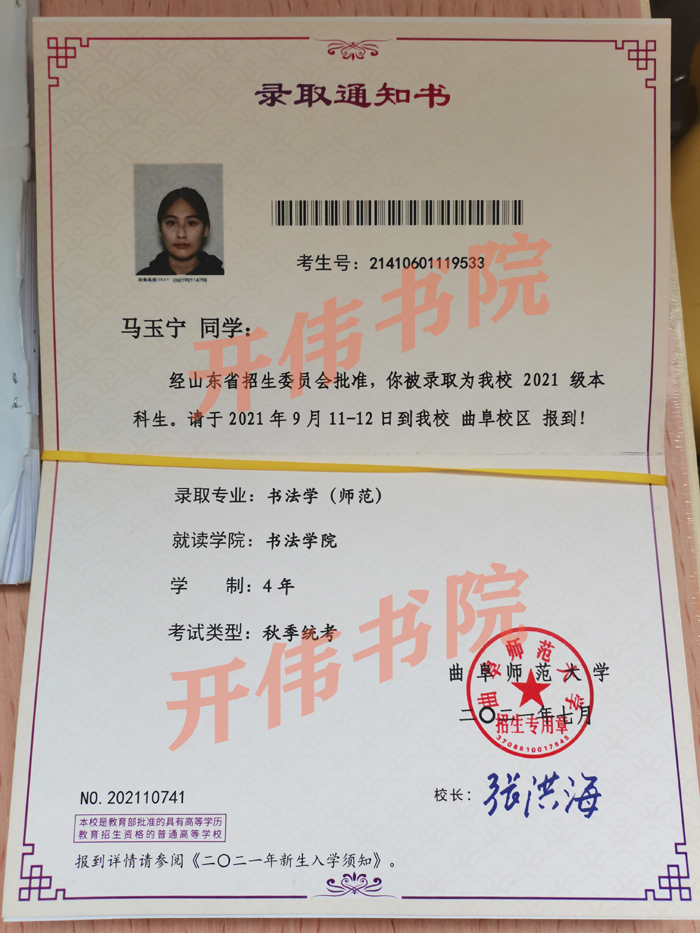 录取通知书
考生号：21410601119533
马玉宁 同学：
经山东省招生委员会批准，你被录取为我校 2021 级本
科生。请于2021年9月11-12日到我校 曲阜校区 报到！
录取专业：书法学（师范）
就读学院：书法学院
学 制：4年
考试类型：秋季统考
曲阜师范大学
二〇二一年七月
曲阜师范大学
招生专用章
3708810017845
校长：张洪海
NO. 202110741
本校是教育部批准的具有高等学历
教育招生资格的普通高等学校
报到详情请参阅《二〇二一年新生入学须知》。
开伟书院
开伟书院